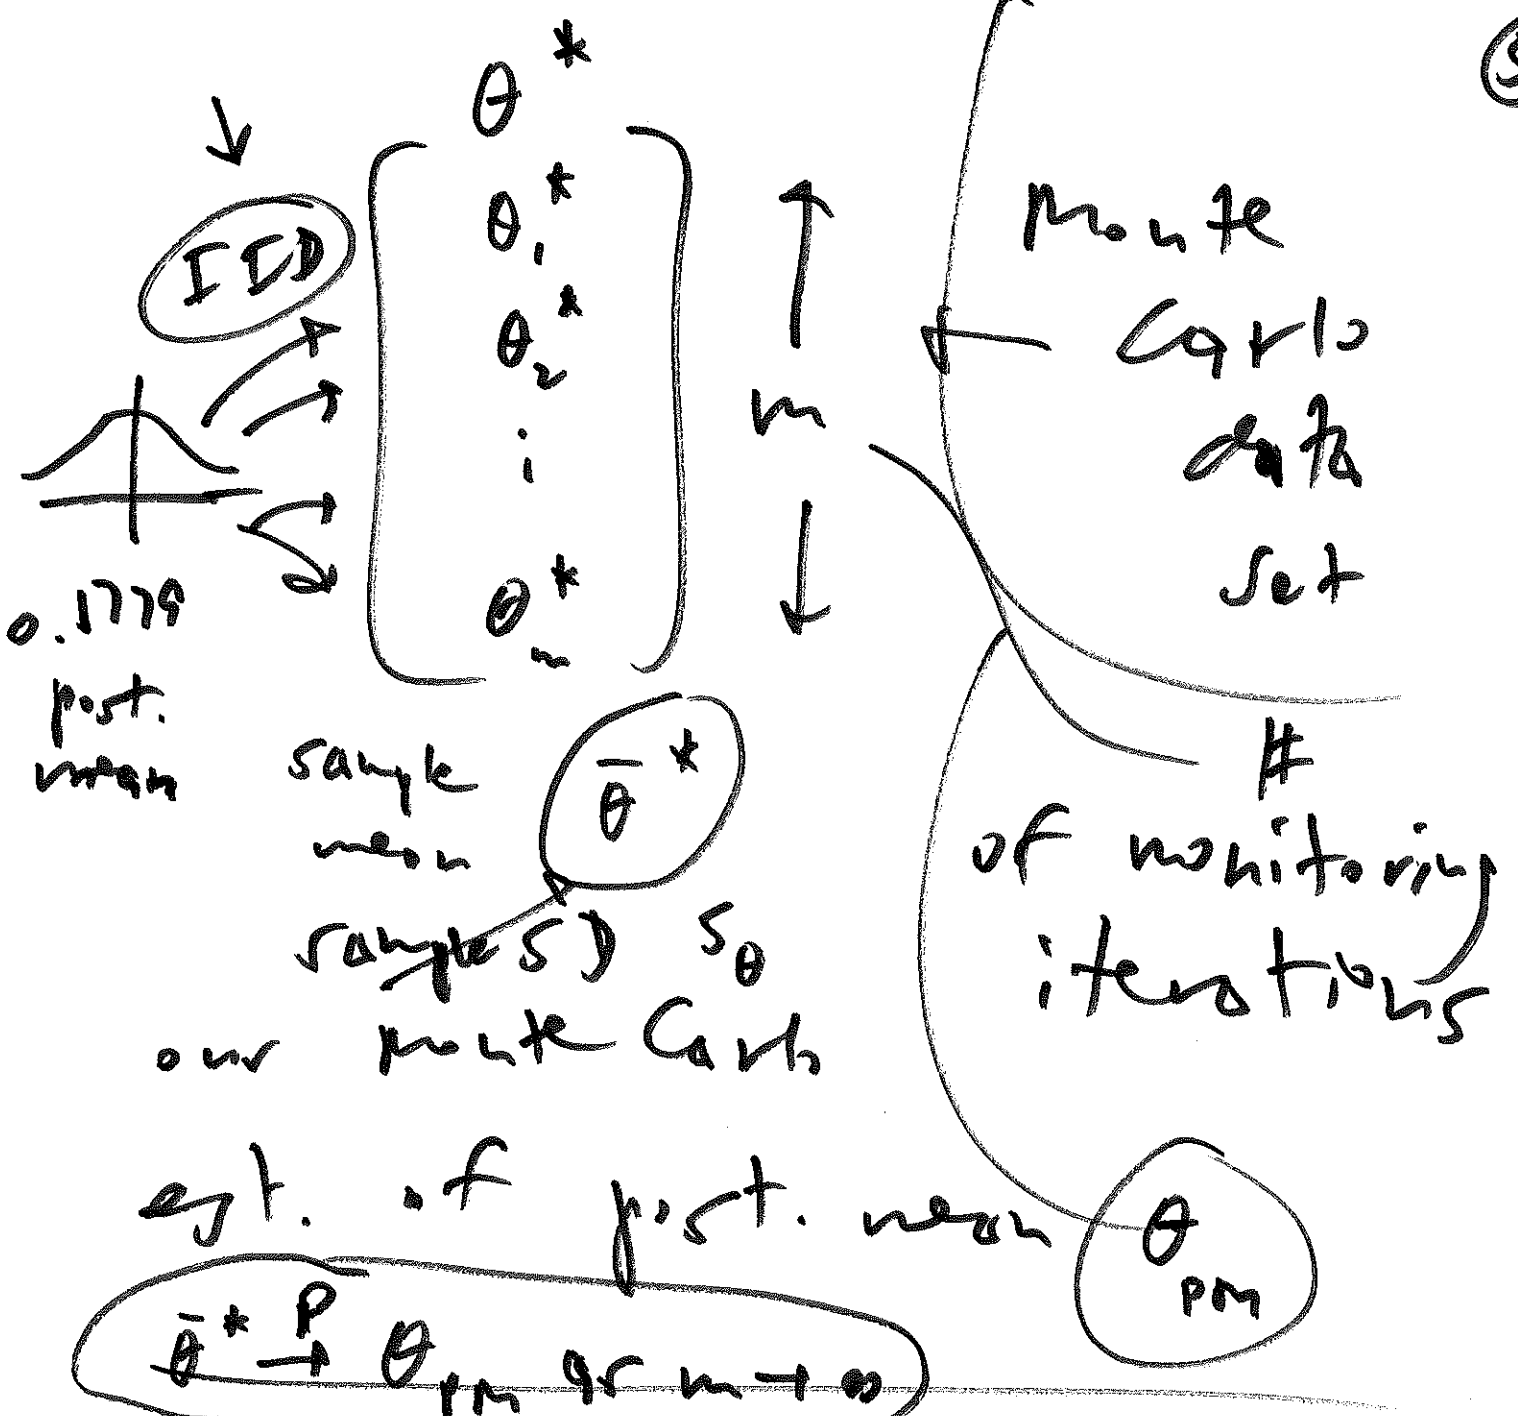 θ*
IID
θ₁*
θ₂*
⋮
θₘ*
m
Monte
Carlo
data
set
0.1779
post.
mean
sample
mean
θ̄*
sample SD s_θ
#
of monitoring
iterations
our Monte Carlo
est. of post. mean θ_PM
θ̄* →ᴾ θ_PM as m → ∞